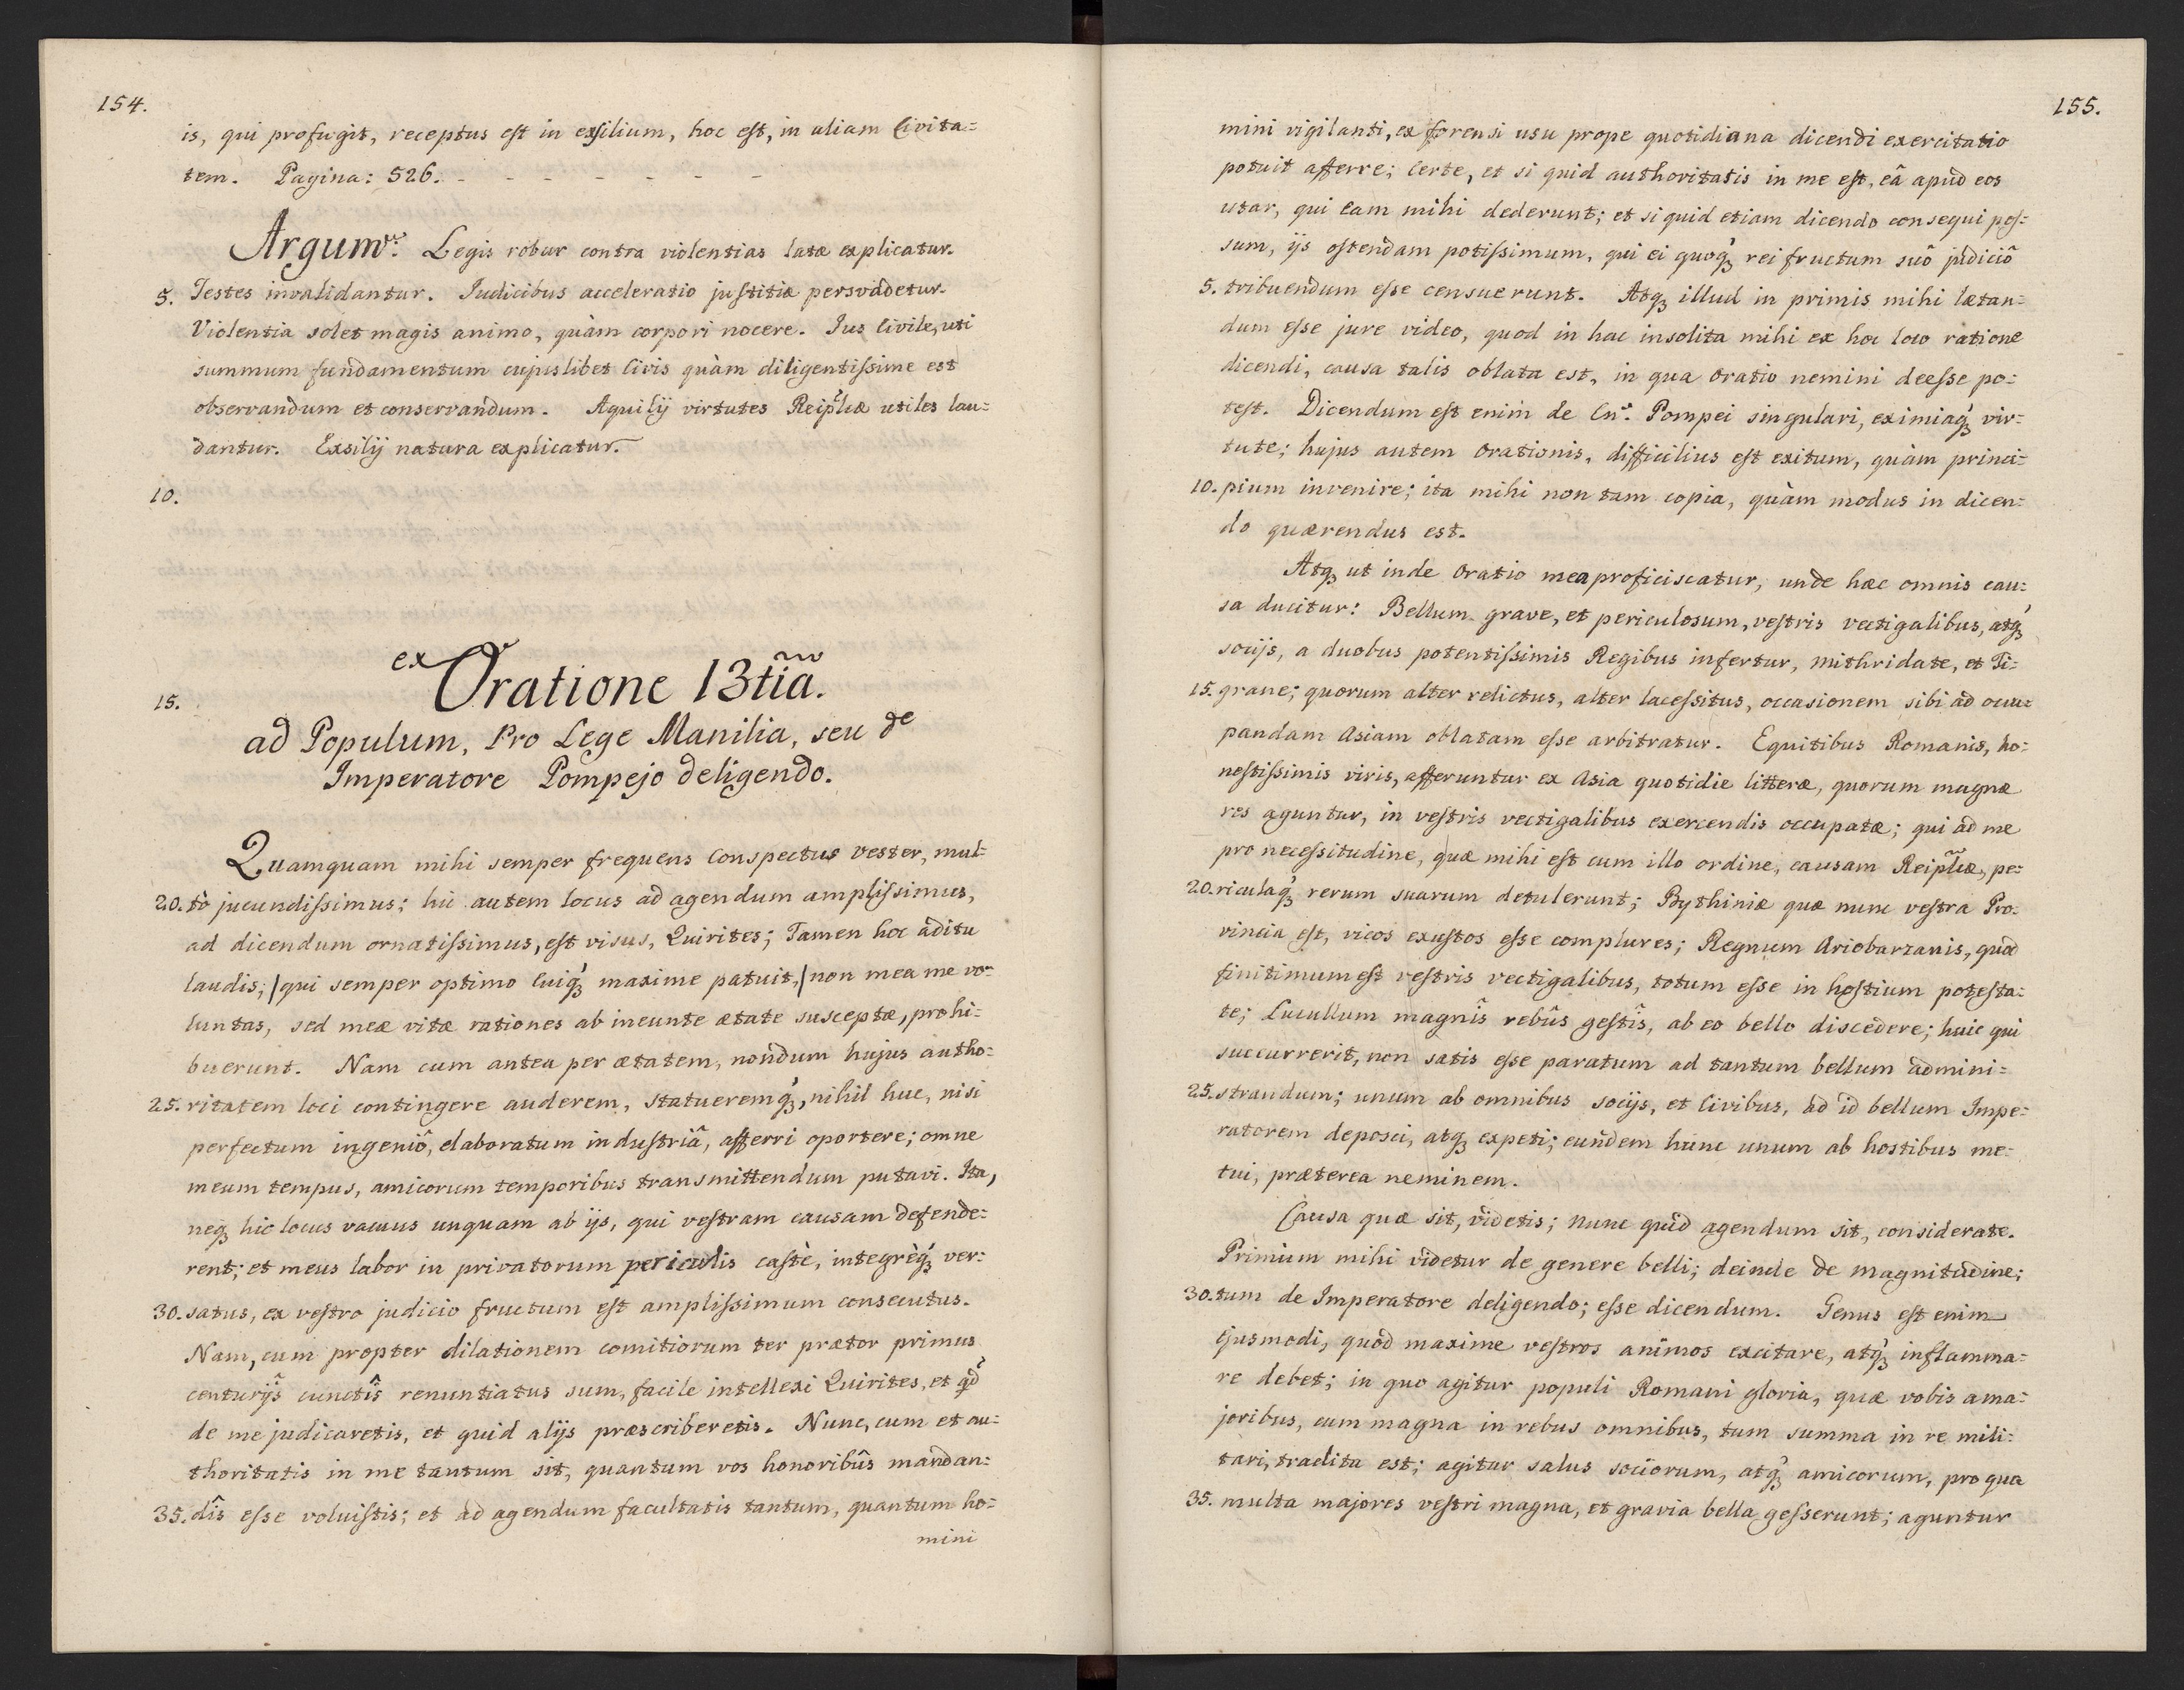 154.
is, qui profugit, receptus est in exsilium, hoc est, in aliam Civita=
tem. Pagina: 526. - - - - - - -
Argumtt. Legis robur contra violentias latæ explicatur.
5. Testes invalidantur. Iudicibus acceleratio justitiæ persvadetur.
Violentia solet magis animo, quàm corpori nocere. Ius Civile, uti
summum fundamentum cujuslibet Civis quàm diligentissime est
observandum et conservandum. Aquilij virtutes Reiplcæ utiles lau=
dantur. Exsilij natura explicatur.
10.
ex Oratione 13tia.
15.
ad Populum, Pro Lege Manilia, seu de
Imperatore Pompejo deligendo.
Quamquam mihi semper frequens Conspectus vester, mul=
20. tò jucundissimus; hic autem locus ad agendum amplissimus,
ad dicendum ornatissimus, est visus, Quirites; Tamen hoc aditu
laudis, /qui semper optimo Cuiqꝫ maxime patuit,/ non mea me vo=
luntas, sed meæ vitæ rationes ab ineunte ætate susceptæ, prohi=
buerunt. Nam cum antea per ætatem, nondum hujus autho=
25. ritatem loci contingere auderem, statueremqꝫ, nihil huc, nisi
perfectum ingeniô, elaboratum industriâ, afferri oportere; omne
meum tempus, amicorum temporibus transmittendum putavi. Ita,
neqꝫ hic locus vacuus unquam ab ijs, qui vestram causam defende=
rent; et meus labor in privatorum periculis castè, integrèqꝫ ver=
30. satus, ex vestro judicio fructum est amplissimum consecutus.
Nam, cum propter dilationem comitiorum ter prætor primus
centurijs cunctîs renuntiatus sum, facile intellexi Quirites, et qd
de me judicaretis, et quid alijs præscriberetis. Nunc, cum et au=
thoritatis in me tantum sit, quantum vos honoribûs mandan=
35. dîs esse voluistis; et ad agendum facultatis tantum, quantum ho=
mini
155.
mini vigilanti, ex forensi usu prope quotidiana dicendi exercitatio
potuit afferre; Certe, et si quid authoritatis in me est, eâ apud eos
utar, qui eam mihi dederunt; et si quid etiam dicendo consequi pos=
sum, ijs ostendam potissimum, qui ei quoqꝫ rei fructum suô judiciô
5. tribuendum esse censuerunt. Atqꝫ illud in primis mihi lætan=
dum esse jure video, quod in hac insolita mihi ex hoc loco ratione
dicendi, causa talis oblata est, in qua Oratio nemini deesse po=
test. Dicendum est enim de Cn. Pompei singulari, eximiaqꝫ vir=
tute; hujus autem Orationis, difficilius est exitum, quàm princi=
10. pium invenire; ita mihi non tam copia, quàm modus in dicen=
do quærendus est.
Atqꝫ ut inde Oratio mea proficiscatur, unde hæc omnis cau=
sa ducitur: Bellum grave, et periculosum, vestris vectigalibus, atqꝫ
socijs, a duobus potentissimis Regibus infertur, Mithridate, et Ti=
15. grane; quorum alter relictus, alter lacessitus, occasionem sibi ad occu=
pandam Asiam oblatam esse arbitratur. Equitibus Romanis, ho=
nestissimis viris, afferuntur ex Asia quotidie litteræ, quorum magnæ
res aguntur, in vestris vectigalibus exercendis occupatæ; qui ad me
pro necessitudine, quæ mihi est cum illo ordine, causam Reiplcæ, pe=
20. riculaqꝫ rerum suarum detulerunt; Bythiniæ quæ nunc vestra Pro=
vincia est, vicos exustos esse complures; Regnum Ariobarzanis, quod
finitimum est vestris vectigalibus, totum esse in hostium potesta=
te; Lucullum magnîs rebûs gestîs, ab eo bello discedere; huic qui
succurrerit, non satis esse paratum ad tantum bellum admini=
25. strandum; unum ab omnibus socijs, et Civibus, ad id bellum Impe=
ratorem deposci, atqꝫ expeti; eundem hunc unum ab hostibus me=
tui, præterea neminem.
Causa quæ sit, videtis; nunc quid agendum sit, considerate.
Primùm mihi videtur de genere belli; deinde de magnitudine;
30. tum de Imperatore deligendo; esse dicendum. Genus est enim
Ejusmodi, quod maxime vestros animos excitare, atqꝫ inflamma=
re debet; in quo agitur populi Romani gloria, quæ vobis a ma=
joribus, cum magna in rebus omnibus, tum summa in re mili=
tari, tradita est; agitur salus sociorum, atqꝫ amicorum, pro qua
35. multa majores vestri magna, et gravia bella gesserunt; aguntur